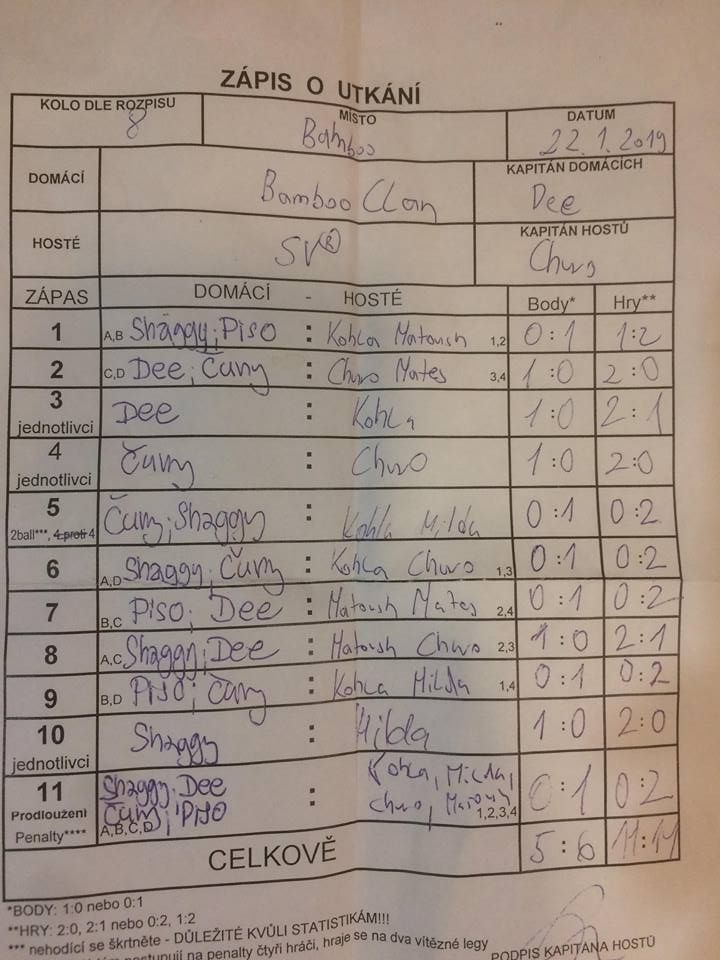 ZÁPIS O UTKÁNÍ
KOLO DLE ROZPISU MÍSTO DATUM
8 Bamboo 22.1.2019
DOMÁCÍ Bamboo Clan KAPITÁN DOMÁCÍCH
Dee
HOSTÉ SV® KAPITÁN HOSTŮ
Churo
ZÁPAS DOMÁCÍ - HOSTÉ Body* Hry**
1 A,B Shaggy; Piso : Kohla Matoush 1,2 0:1 1:2
2 C,D Dee; Čuny : Churo Mates 3,4 1:0 2:0
3 jednotlivci Dee : Kohla 1:0 2:1
4 jednotlivci Čuny : Churo 1:0 2:0
5 2ball***, 4 proti 4 Čuny; Shaggy : Kohla Milda 0:1 0:2
6 A,D Shaggy; Čuny : Kohla Churo 1,3 0:1 0:2
7 B,C Piso; Dee : Matoush Mates 2,4 0:1 0:2
8 A,C Shaggy; Dee : Matoush Churo 2,3 1:0 2:1
9 B,D Piso; Čuny : Kohla Milda 1,4 0:1 0:2
10 jednotlivci Shaggy : Milda 1:0 2:0
11 Shaggy; Dee : Kohla, Milda, 0:1 0:2
Prodloužení Čuny; Piso Churo, 1,2,3,4
Penalty**** A,B,C,D
CELKOVĚ 5:6 11:14
*BODY: 1:0 nebo 0:1
**HRY: 2:0, 2:1 nebo 0:2, 1:2
*** nehodící se škrtněte - DŮLEŽITÉ KVŮLI STATISTIKÁM!!!
postupují na penalty čtyři hráči, hraje se na dva vítězné legy
PODPIS KAPITÁNA HOSTŮ